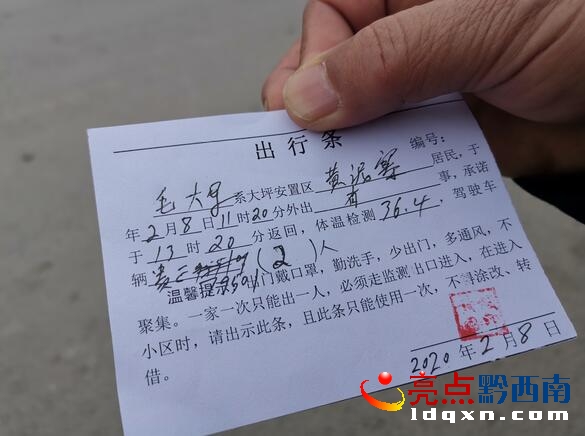 出行条
编号：
毛大 系大坪安置区 黄泥寨 居民，于
年2月8日11时20分外出 事，承诺
于13时20分返回，体温检测36.4，驾驶车
辆 (2)人
温馨提示 门戴口罩，勤洗手，少出门，多通风，不
聚集。一家一次只能出一人，必须走监测出口进入，在进入
小区时，请出示此条，且此条只能使用一次，不得涂改、转
借。
2020年2月8日
亮点黔西南
ldqxn.com